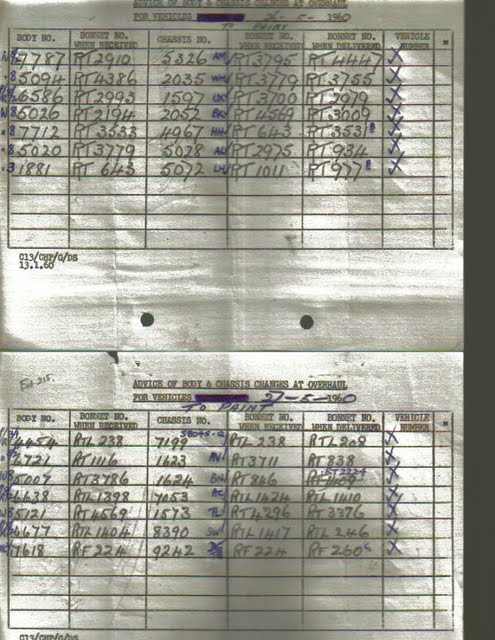 ADVICE OF BODY & CHASSIS CHANGES AT OVERHAUL
FOR VEHICLES 26-5-1960
TO PAINT
BODY NO. BONNET NO. WHEN RECEIVED CHASSIS NO. BONNET NO. WHEN RECEIVED BONNET NO. WHEN DELIVERED VEHICLE NUMBER
7787 RT2910 5326 AM RT3795 RT4447 X
5094 RT4386 2035 WH RT3779 RT3755 X
6586 RT2993 1507 UX RT3700 RT2979 X
5026 RT2194 2052 BK RT4569 RT3009 X
7712 RT3533 4967 HH RT643 RT3531 B X
5020 RT3779 5028 AL RT2975 RT934 X
1881 RT643 5072 LH RT1011 RT977 B X
C13/CHP/G/DS
13.1.60
ADVICE OF BODY & CHASSIS CHANGES AT OVERHAUL
FOR VEHICLES 27-5-1960
TO PAINT
BODY NO. BONNET NO. WHEN RECEIVED CHASSIS NO. BONNET NO. WHEN RECEIVED BONNET NO. WHEN DELIVERED VEHICLE NUMBER
4454 RTL238 7199 RTL238 RTL208 X
2721 RT1116 1623 AV RT3711 RT838 X
5007 RT3786 1624 BN RT846 RT1409 RT2224 X
6638 RTL1398 7053 AC RTL1424 RTL1410 X
5121 RT4569 1573 TL RT4296 RT3376 X
6677 RTL1404 8390 SW RTL1417 RTL246 X
7618 RF224 9242 RF224 RF260 C X
C13/CHP/G/DS